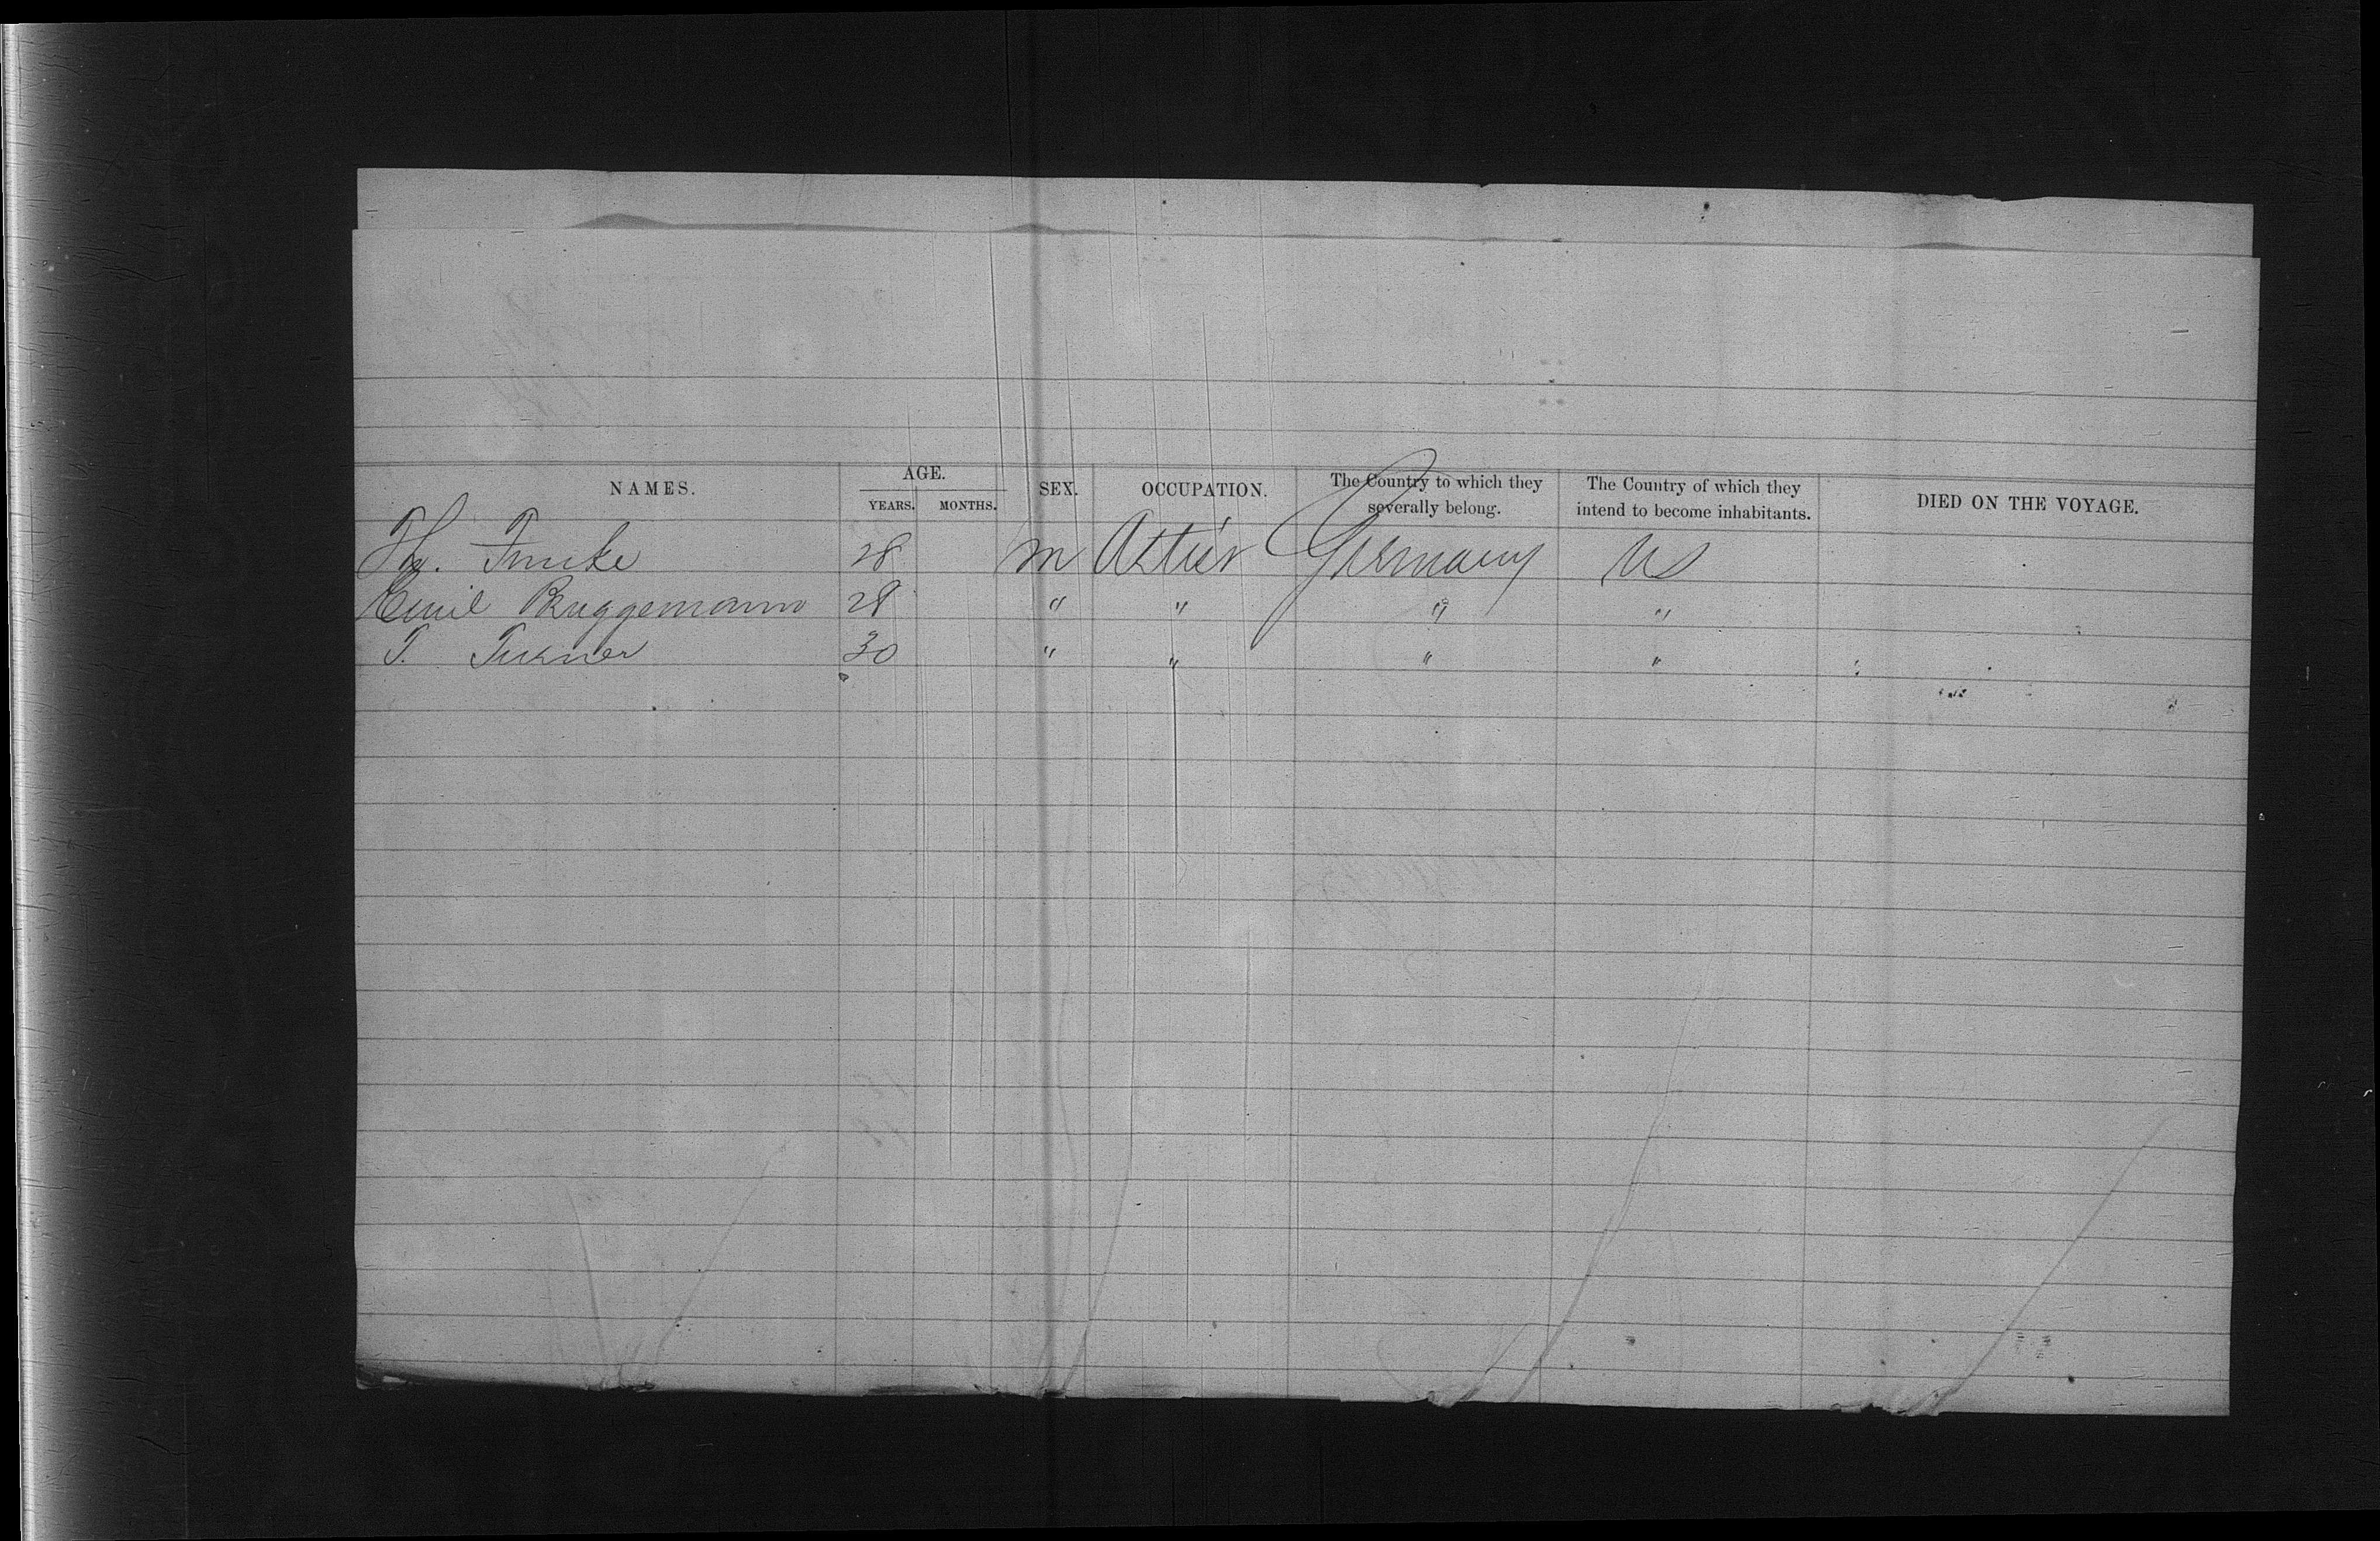 NAMES. AGE. YEARS. MONTHS. SEX. OCCUPATION. The Country to which they severally belong. The Country of which they intend to become inhabitants. DIED ON THE VOYAGE.
28 m Germany US
Emil Bruggemann 28 " " " "
T. Turner 30 " " " "